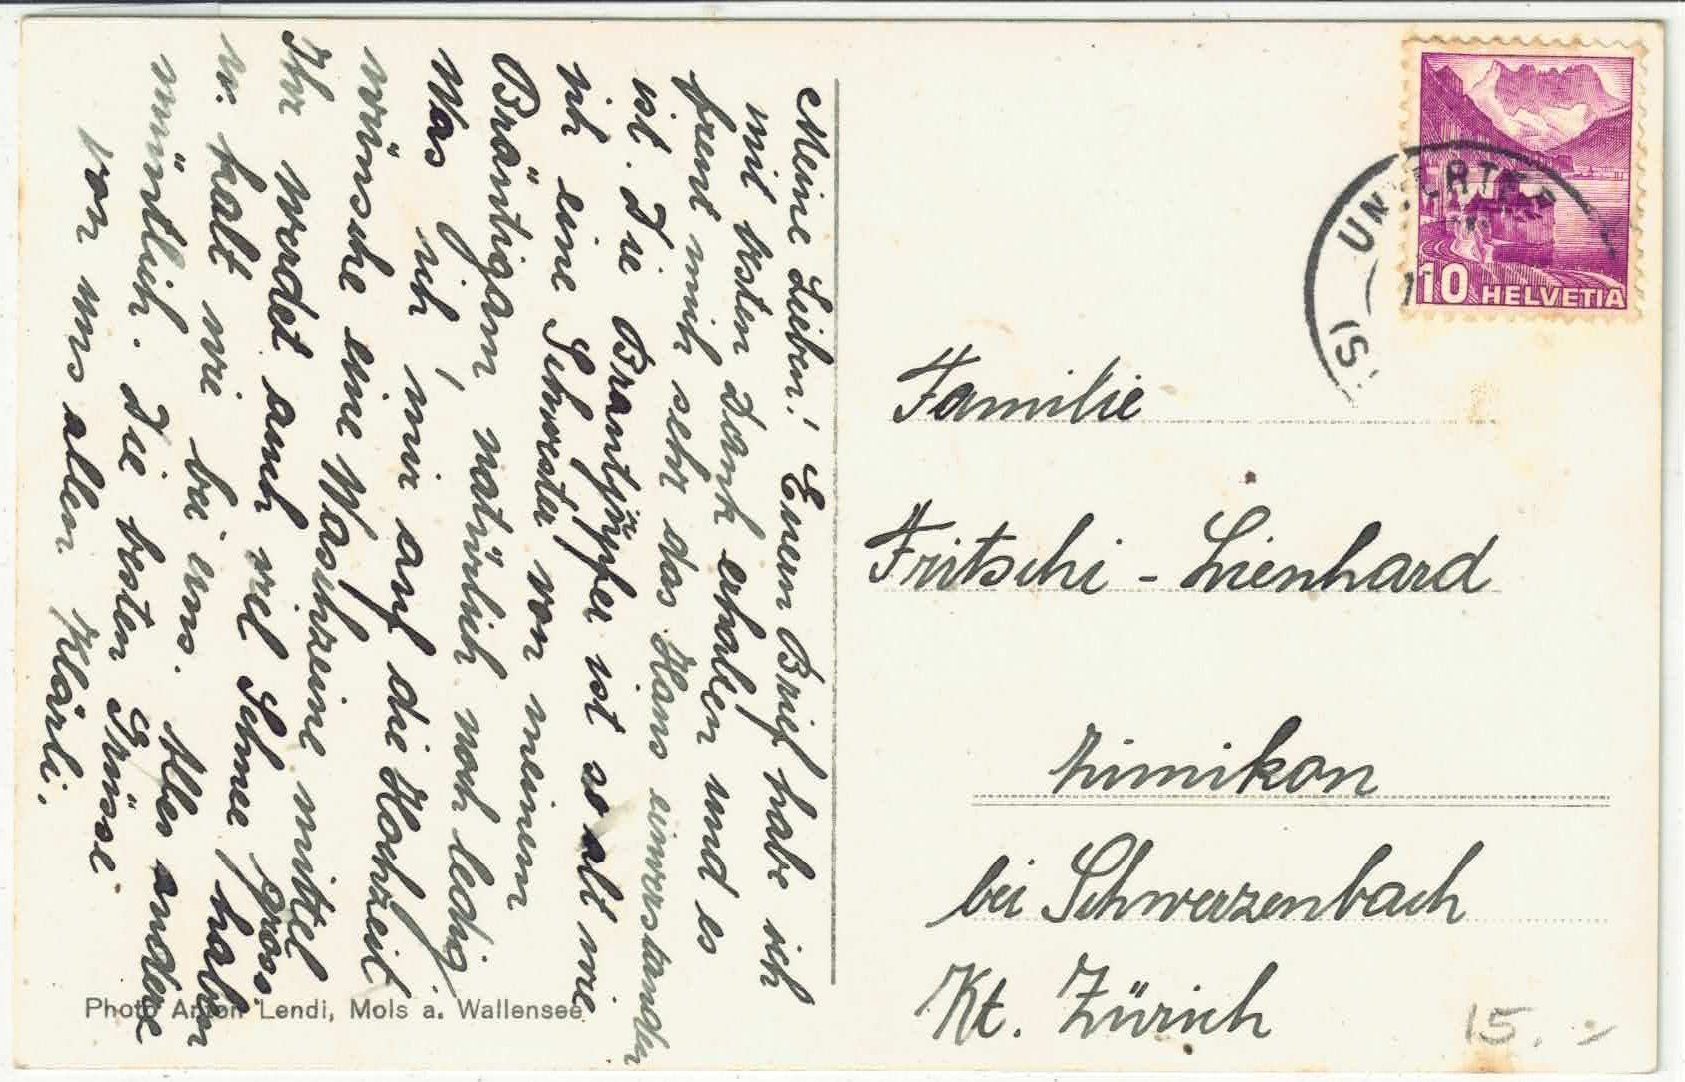 Meine Lieben! Euern Brief habe ich
mit bestem Dank erhalten und es
freut mich sehr das Hans einverstanden
ist. Die Brautjüpfer ist so alt wie
ich eine Schwester von meinem
Bräutigam, natürlich noch ledig,
Was ich mir auf die Hochzeit
wünsche eine Waschzeine mittel
Ihr werdet auch viel Schnee haben
u. kalt wie bei uns. Alles andere
mündlich. Die besten Grüsse
von uns allen Klärli.
gross
Photo Anton Lendi, Mols a. Wallensee
10 HELVETIA
UNTERTER
(S
Familie
Fritschi - Lienhard
Zimikon
bei Schwerzenbach
Kt. Zürich
15.-